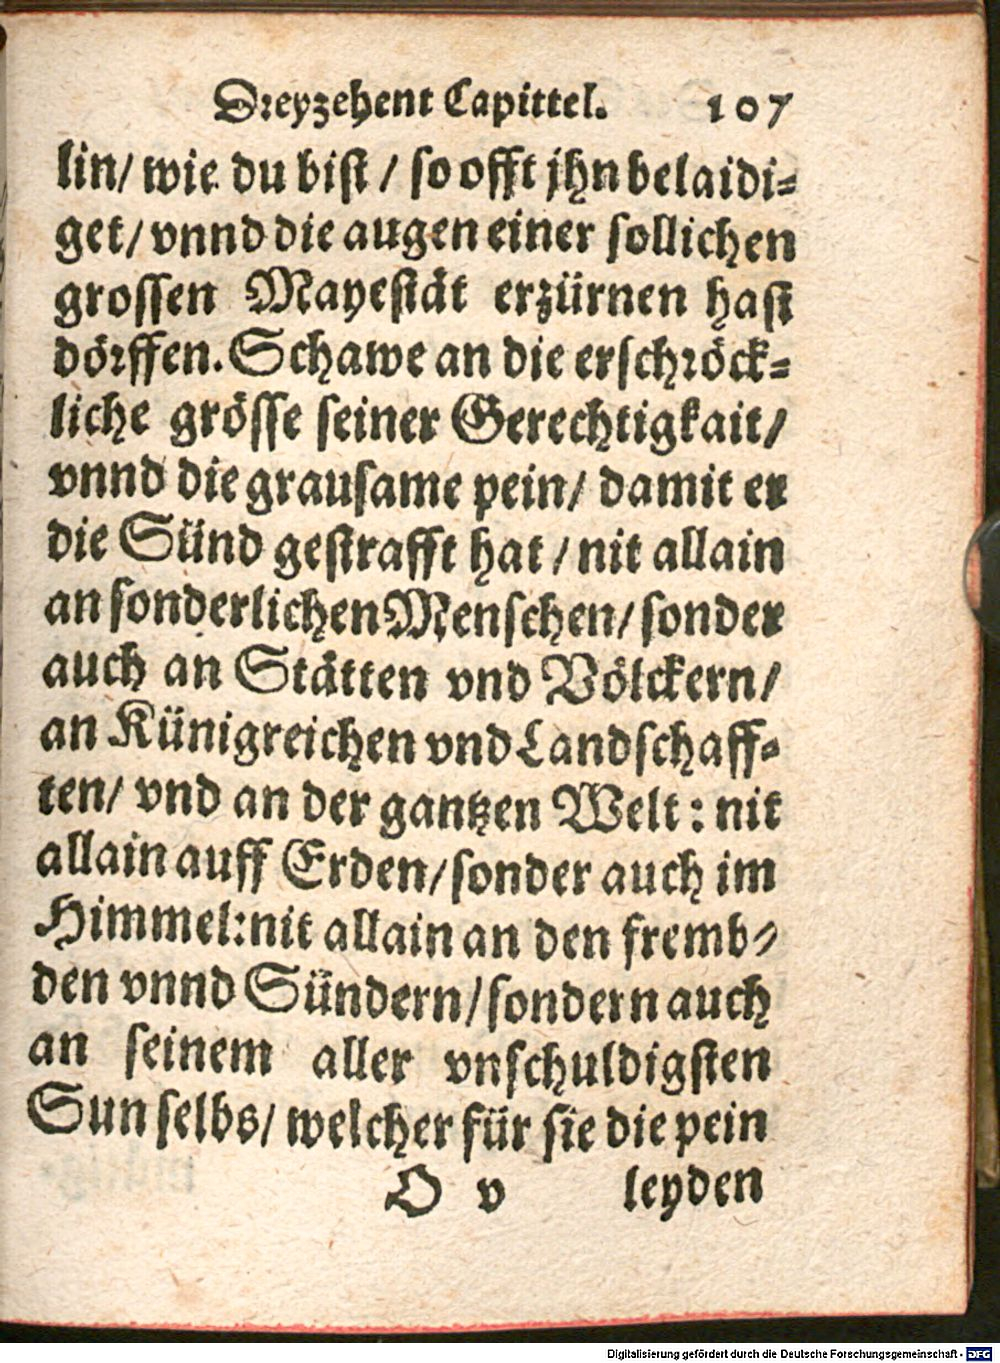 Dreyzehent Capittel. 107
lin/ wie du bist / so offt jhn belaidi⸗
get/ vnnd die augen einer sollichen
grossen Mayestät erzürnen hast
dörffen. Schawe an die erschröck⸗
liche grösse seiner Gerechtigkait/
vnnd die grausame pein/ damit er
die Sünd gestrafft hat / nit allain
an sonderlichen Menschen/ sonder
auch an Stätten vnd Völckern/
an Künigreichen vnd Landschaff⸗
ten/ vnd an der gantzen Welt : nit
allain auff Erden/ sonder auch im
Himmel: nit allain an den fremb⸗
den vnnd Sündern/ sondern auch
an seinem aller vnschuldigsten
Sun selbs/ welcher für sie die pein
O v leyden
Digitalisierung gefördert durch die Deutsche Forschungsgemeinschaft - DFG